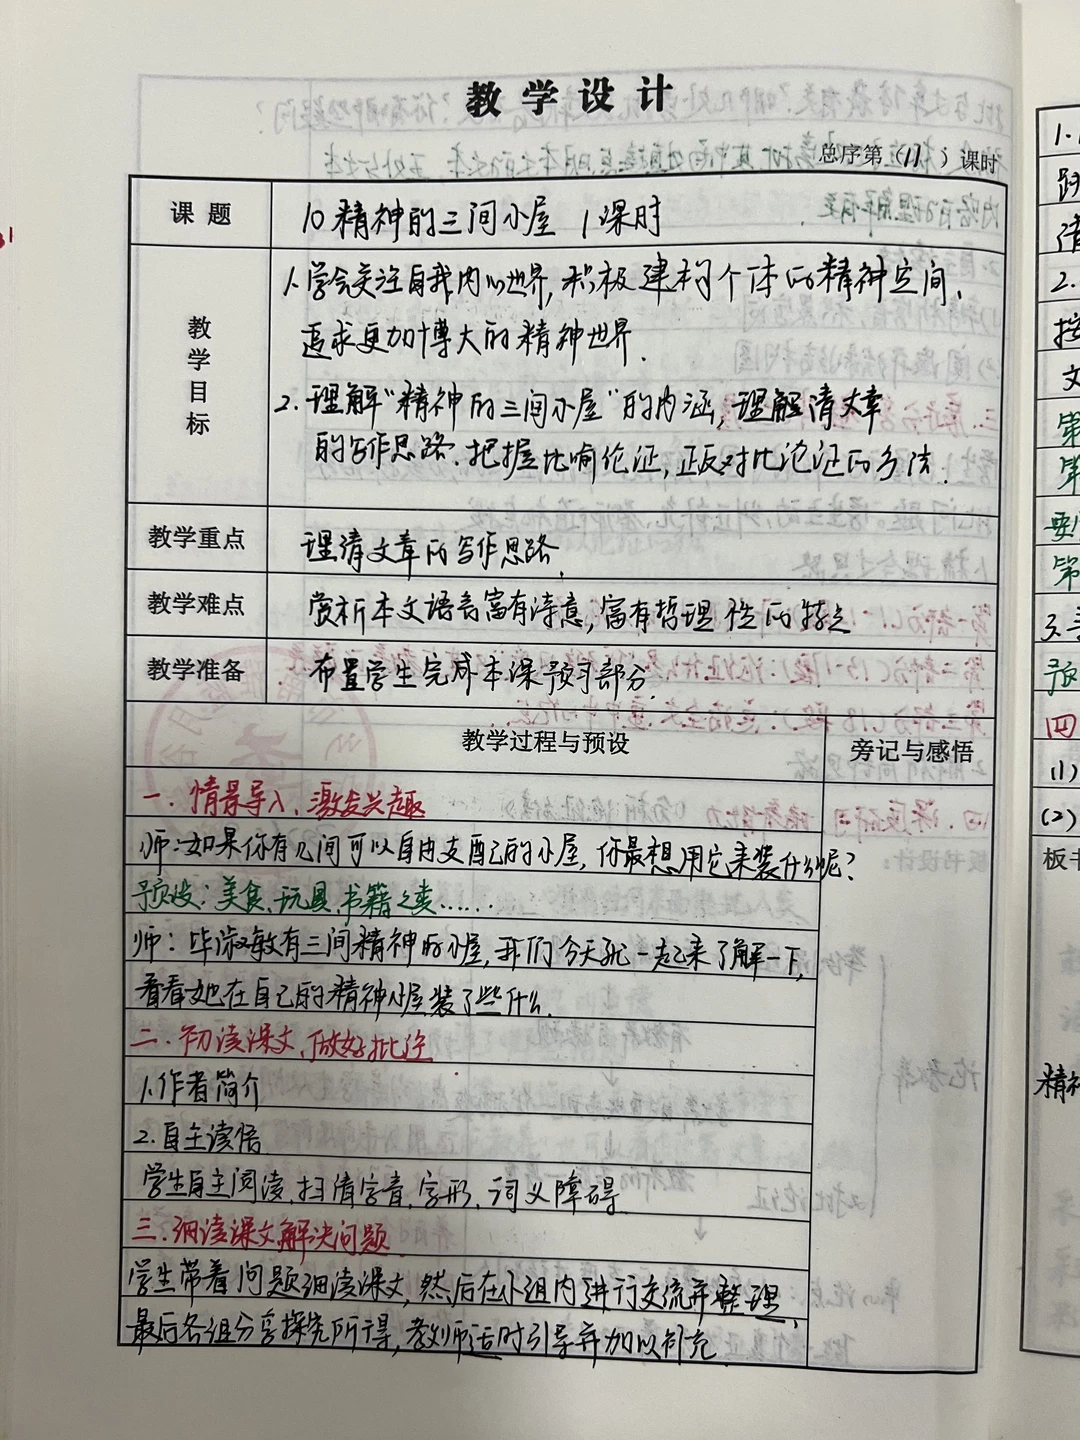 教学设计
总序第（11）课时
课题
10 精神的三间小屋 1课时
教学目标
1.学会关注自我内心世界,积极建构个体的精神空间,
追求更加博大的精神世界.
2.理解"精神的三间小屋"的内涵,理解清文章
的写作思路.把握比喻论证,正反对比论证的方法.
教学重点
理清文章的写作思路.
教学难点
赏析本文语言富有诗意,富有哲理性的特点
教学准备
布置学生完成本课预习部分.
教学过程与预设
旁记与感悟
一.情景导入,激发兴趣
师:如果你有几间可以自由支配的小屋,你最想用它来装什么呢?
预设:美食、玩具、书籍之类……
师:毕淑敏有三间精神的小屋,我们今天就一起来了解一下,
看看她在自己的精神小屋装了些什么.
二.初读课文,做好批注
1.作者简介
2.自主读悟
学生自主阅读,扫清字音,字形,词义障碍
三.细读课文解决问题
学生带着问题细读课文,然后在小组内进行交流并整理,
最后各组分享探究所得,教师适时引导并加以补充.
1.
2.
按
文
第
第
第
3.
预
四
(1)
(2)
板书
精神